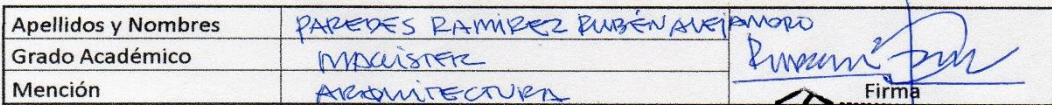 Apellidos y Nombres PAREDES RAMIREZ RUBÉN ALEJANDRO
Grado Académico MAGISTER
Mención ARQUITECTURA
Firma